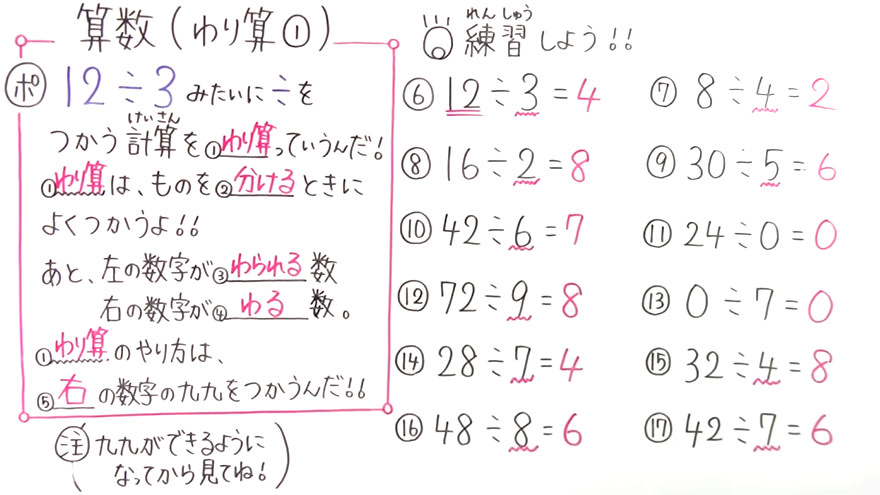 算数(わり算①)
ポ 12÷3 みたいに÷を
けいさん
つかう計算を①わり算っていうんだ!
①わり算は、ものを②分けるときに
よくつかうよ!!
あと、左の数字が③わられる数
右の数字が④わる数。
①わり算のやり方は、
⑤右の数字の九九をつかうんだ!!
注 九九ができるように
なってから見てね!
れんしゅう
練習しよう!!
⑥ 12÷3=4
⑦ 8÷4=2
⑧ 16÷2=8
⑨ 30÷5=6
⑩ 42÷6=7
⑪ 24÷0=0
⑫ 72÷9=8
⑬ 0÷7=0
⑭ 28÷7=4
⑮ 32÷4=8
⑯ 48÷8=6
⑰ 42÷7=6